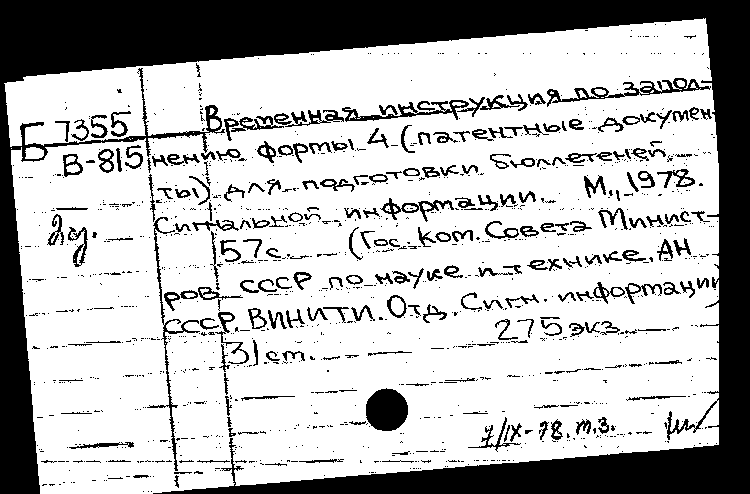 Б 7355
В-815
2 оз.
Временная инструкция по запол-
нению формы 4 (патентные докумен-
ты) для подготовки бюллетеней
Сигнальной информации. М., 1978.
57с. (Гос. Ком. Совета Минист-
ров СССР по науке и технике. АН
СССР. ВИНИТИ. Отд. Сигн. информации)
275 экз.
3) ст.
7/IX-78. т.з.